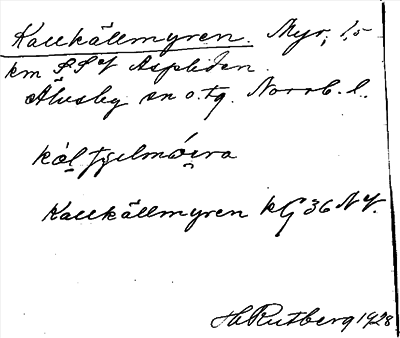 Kallkällmyren. Myr, 1,5
km SSV Aspliden.
Älvsby sn o. tg. Norrb. l.
Kallkällmyren kG 36 NV.
H. Rutberg 1928